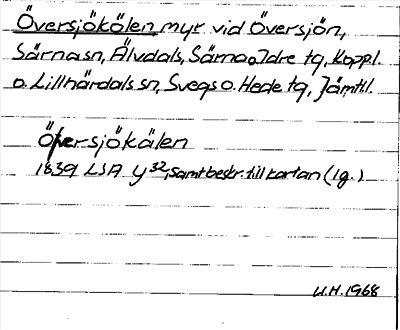 Översjökölen myr vid Översjön,
Särna sn, Älvdals, Särna o Idre tg, Koppl.
o. Lillhärdals sn, Svegs o. Hede tg, Jämtl.
Öfversjökälen
1839 LSA Y 32, samt beskr. till kartan (1g.)
U.H. 1968